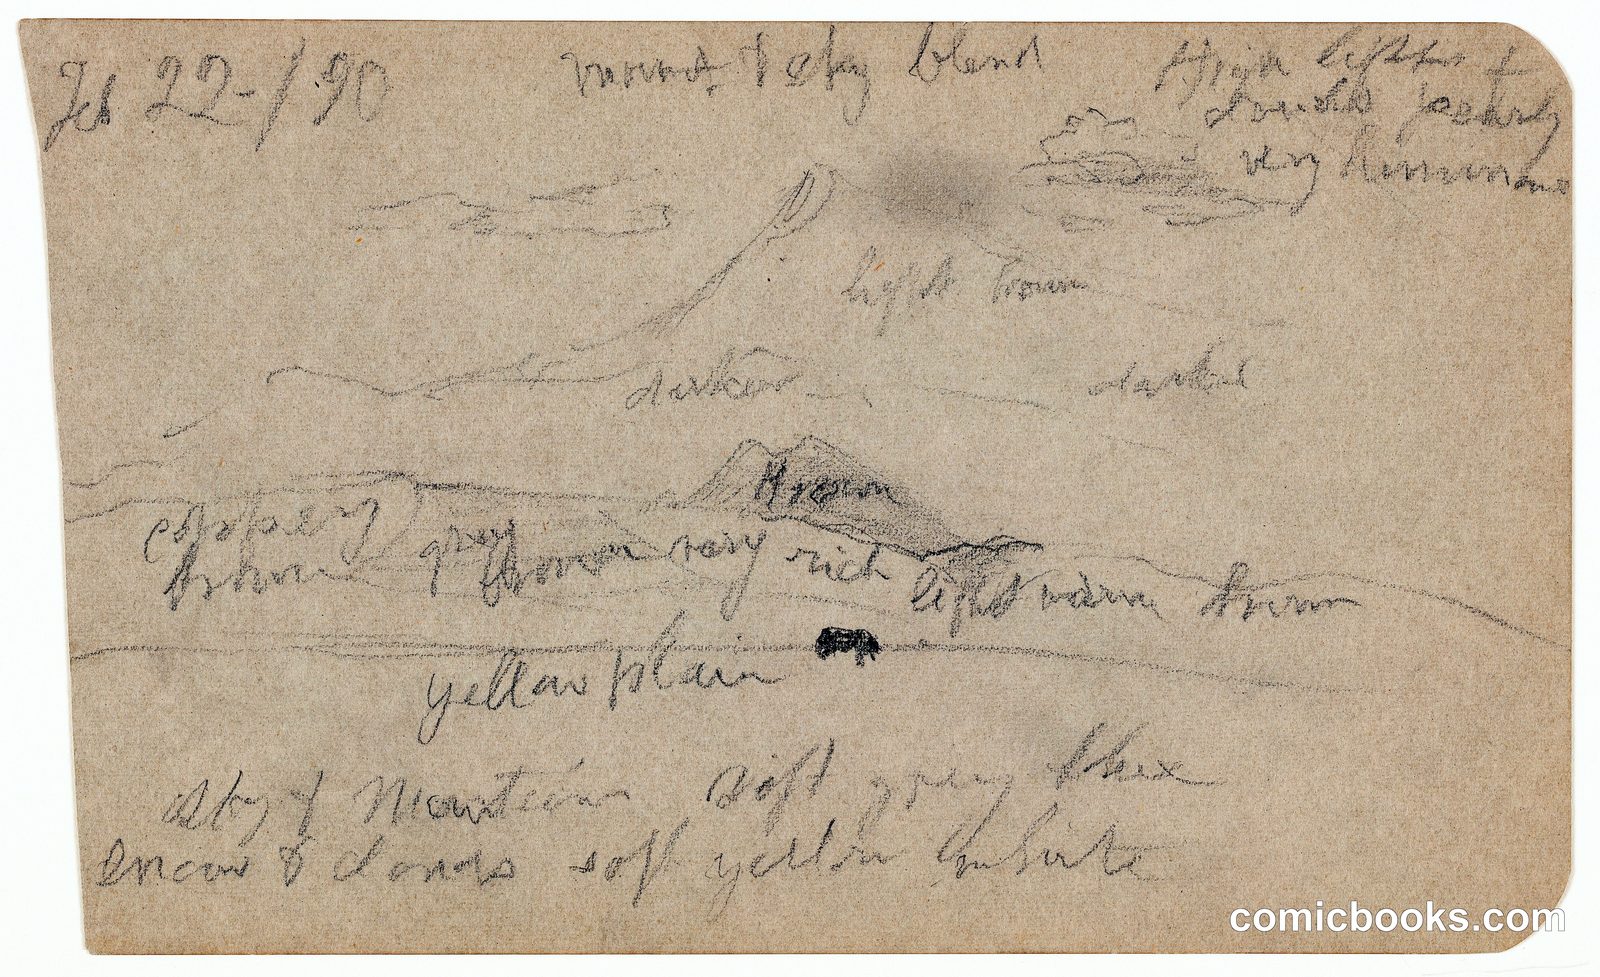 Feb 22-/90
mount & sky blend
High lights +
clouds pearly
very luminous
light brown
darker
darker
Brown
coppery
brown
grey
brown very rich
light warm brown
yellow plain
Sky & Mountain soft grey blue
snow & clouds soft yellow white
comicbooks.com